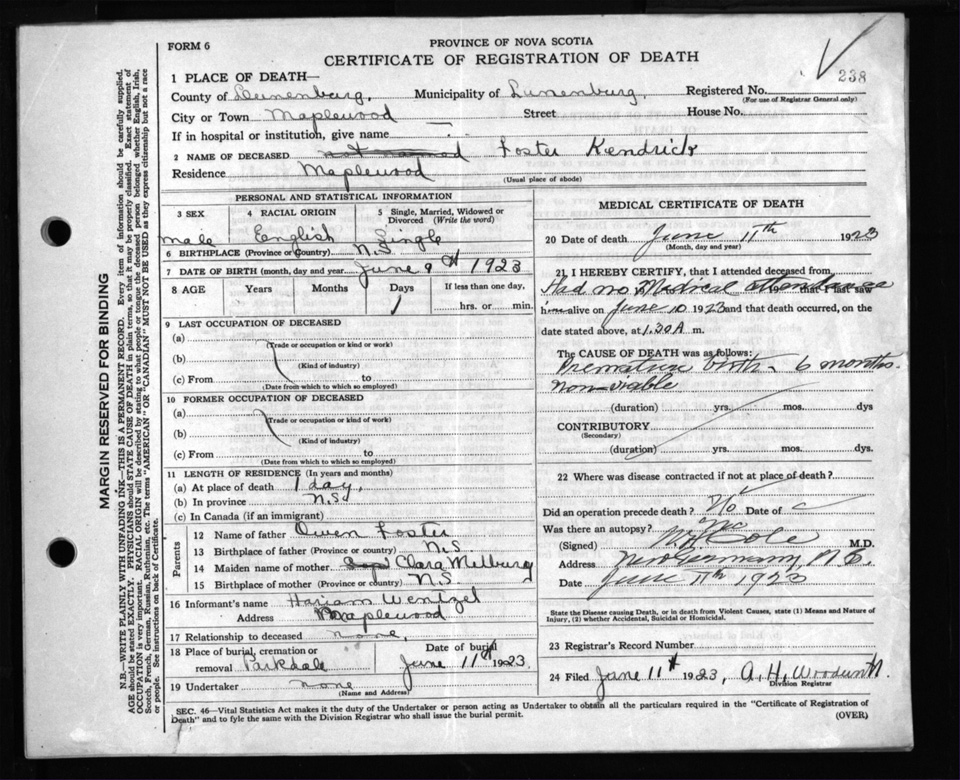 FORM 6
PROVINCE OF NOVA SCOTIA
CERTIFICATE OF REGISTRATION OF DEATH
238
1 PLACE OF DEATH—
County of Lunenburg, Municipality of Lunenburg, Registered No.
(For use of Registrar General only)
City or Town Maplewood Street House No.
If in hospital or institution, give name
2 NAME OF DECEASED not named Foster Kendrick
Residence Maplewood (Usual place of abode)
PERSONAL AND STATISTICAL INFORMATION
3 SEX 4 RACIAL ORIGIN 5 Single, Married, Widowed or Divorced (Write the word)
male English Single
6 BIRTHPLACE (Province or Country) N.S
7 DATE OF BIRTH (month, day and year) June 9th 1923
8 AGE Years Months Days If less than one day,
1 hrs. or min.
9 LAST OCCUPATION OF DECEASED
(a)
(Trade or occupation or kind or work)
(b)
(Kind of industry)
(c) From to
(Date from which to which so employed)
10 FORMER OCCUPATION OF DECEASED
(a)
(Trade or occupation or kind or work)
(b)
(Kind of industry)
(c) From to
(Date from which to which so employed)
11 LENGTH OF RESIDENCE (In years and months)
(a) At place of death 1 day,
(b) In province N.S
(c) In Canada (if an immigrant)
Parents
12 Name of father Owen Foster
13 Birthplace of father (Province or country) N.S
14 Maiden name of mother Clara Melburg
15 Birthplace of mother (Province or country) N S
16 Informant's name Hariam Wentzel
Address Maplewood
17 Relationship to deceased none,
18 Place of burial, cremation or removal Parkdale Date of burial June 11th 1923
19 Undertaker none
(Name and Address)
MEDICAL CERTIFICATE OF DEATH
20 Date of death June 11th 1923
(Month, day and year)
21 I HEREBY CERTIFY, that I attended deceased from
Had no Medical attendance that I last saw
h alive on June 10 1923 and that death occurred, on
date stated above, at 1.30 A m.
The CAUSE OF DEATH was as follows:
Premature birth - 6 months.
non-viable
(duration) yrs. mos. dys
CONTRIBUTORY
(Secondary)
(duration) yrs. mos. dys
22 Where was disease contracted if not at place of death?
Did an operation precede death? No Date of
Was there an autopsy? No
(Signed) Cole M.D.
Address New Germany, N.S.
Date June 11th 1923
State the Disease causing Death, or in death from Violent Causes, state (1) Means and Nature of Injury, (2) whether Accidental, Suicidal or Homicidal.
23 Registrar's Record Number
24 Filed June 11th 1923, A. H. Woodworth.
Division Registrar
SEC. 46—Vital Statistics Act makes it the duty of the Undertaker or person acting as Undertaker to obtain all the particulars required in the "Certificate of Registration of
Death" and to fyle the same with the Division Registrar who shall issue the burial permit.
(OVER)
MARGIN RESERVED FOR BINDING
N.B.—WRITE PLAINLY WITH UNFADING INK—THIS IS A PERMANENT RECORD. Every item of information should be carefully supplied.
AGE should be stated EXACTLY. PHYSICIANS should STATE CAUSE OF DEATH in plain terms, so that it may be properly classified. Exact statement of
OCCUPATION is very important. RACIAL ORIGIN will be described by stating to what people or tongue the deceased person belonged whether English, Irish,
Scotch, French, German, Russian, Ruthenian, etc. The terms "AMERICAN" or "CANADIAN" MUST NOT BE USED as they express citizenship but not a race
or people. See instructions on back of Certificate.